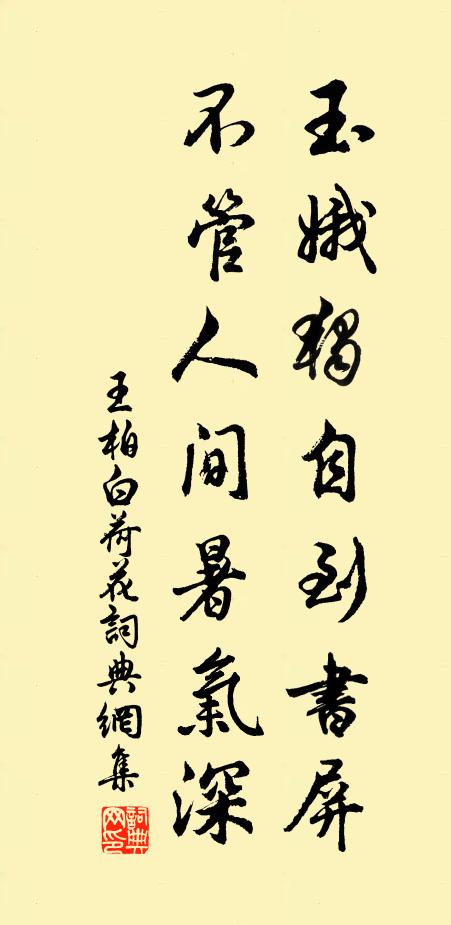 玉娥獨自到書屏
不管人间暑氣深
王柏白荷花詞典網集
詞典网印